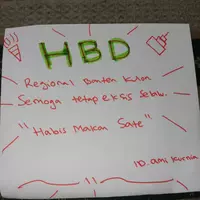 HBD
Regional Banten Kulon
Semoga tetap eksis Sebab..
"Habis Makan Sate"
ID. ami kurnia